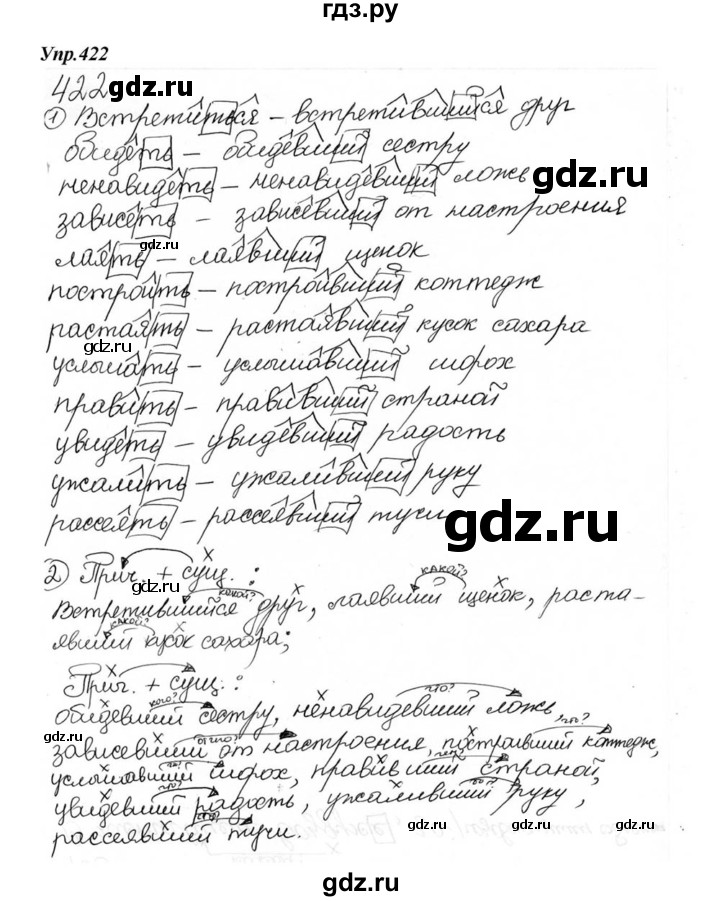 гдз.ру
Упр.422
422
gdz.ru
① Встретиться – встретившийся друг
обидеть – обидевший сестру
ненавидеть – ненавидевший ложь
gdz.ru
зависеть – зависевший от настроения
gdz.ru
лаять – лаявший щенок
построить – построивший коттедж
растаять – растаявший кусок сахара
gdz.ru
услышать – услышавший шорох
править – правивший страной
увидеть – увидевший радость
ужалить – ужаливший руку
рассеять – рассеявший тучи
gdz.ru
2) Прич. + сущ.:
gdz.ru
какой? какой?
Встретившийся друг, лаявший щенок, раста-
какой?
явший кусок сахара;
Прич. + сущ.:
кого? что?
обидевший сестру, ненавидевший ложь,
gdz.ru
от чего? что?
зависевший от настроения, построивший коттедж,
что? чем?
услышавший шорох, правивший страной,
что? что?
увидевший радость, ужаливший руку,
что?
рассеявший тучи.
gdz.ru
gdz.ru